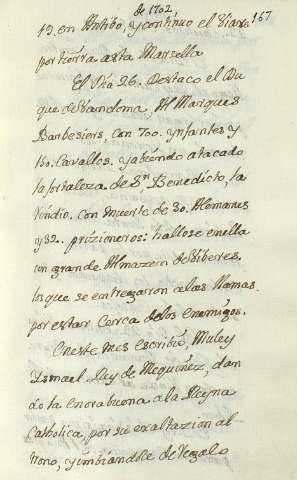 de 1702
167
19. en Antibo, y continuo el Viaxe
por tierra asta Marsella
El Dia 26. Destaco el Du
que de Vandoma, Al Marques
Barbesiers, con 700. ynfantes y
150. Cavallos. y abiendo atacado
la fortaleza de Sn. Benedicto, la
rindio. con muerte de 30. Alemanes
y 32.. prizioneros: hallose en ella
un grande Almazen de Viberes.
los que se entregaron a las llamas.
por estar Cerca de los enemigos.
En este mes escribio, Muley
Ysmael Rey de Mequinez, dan
do la enorabuena a la Reyna
Catholica, por su exaltazion al
trono, y ymbiandole de regalo